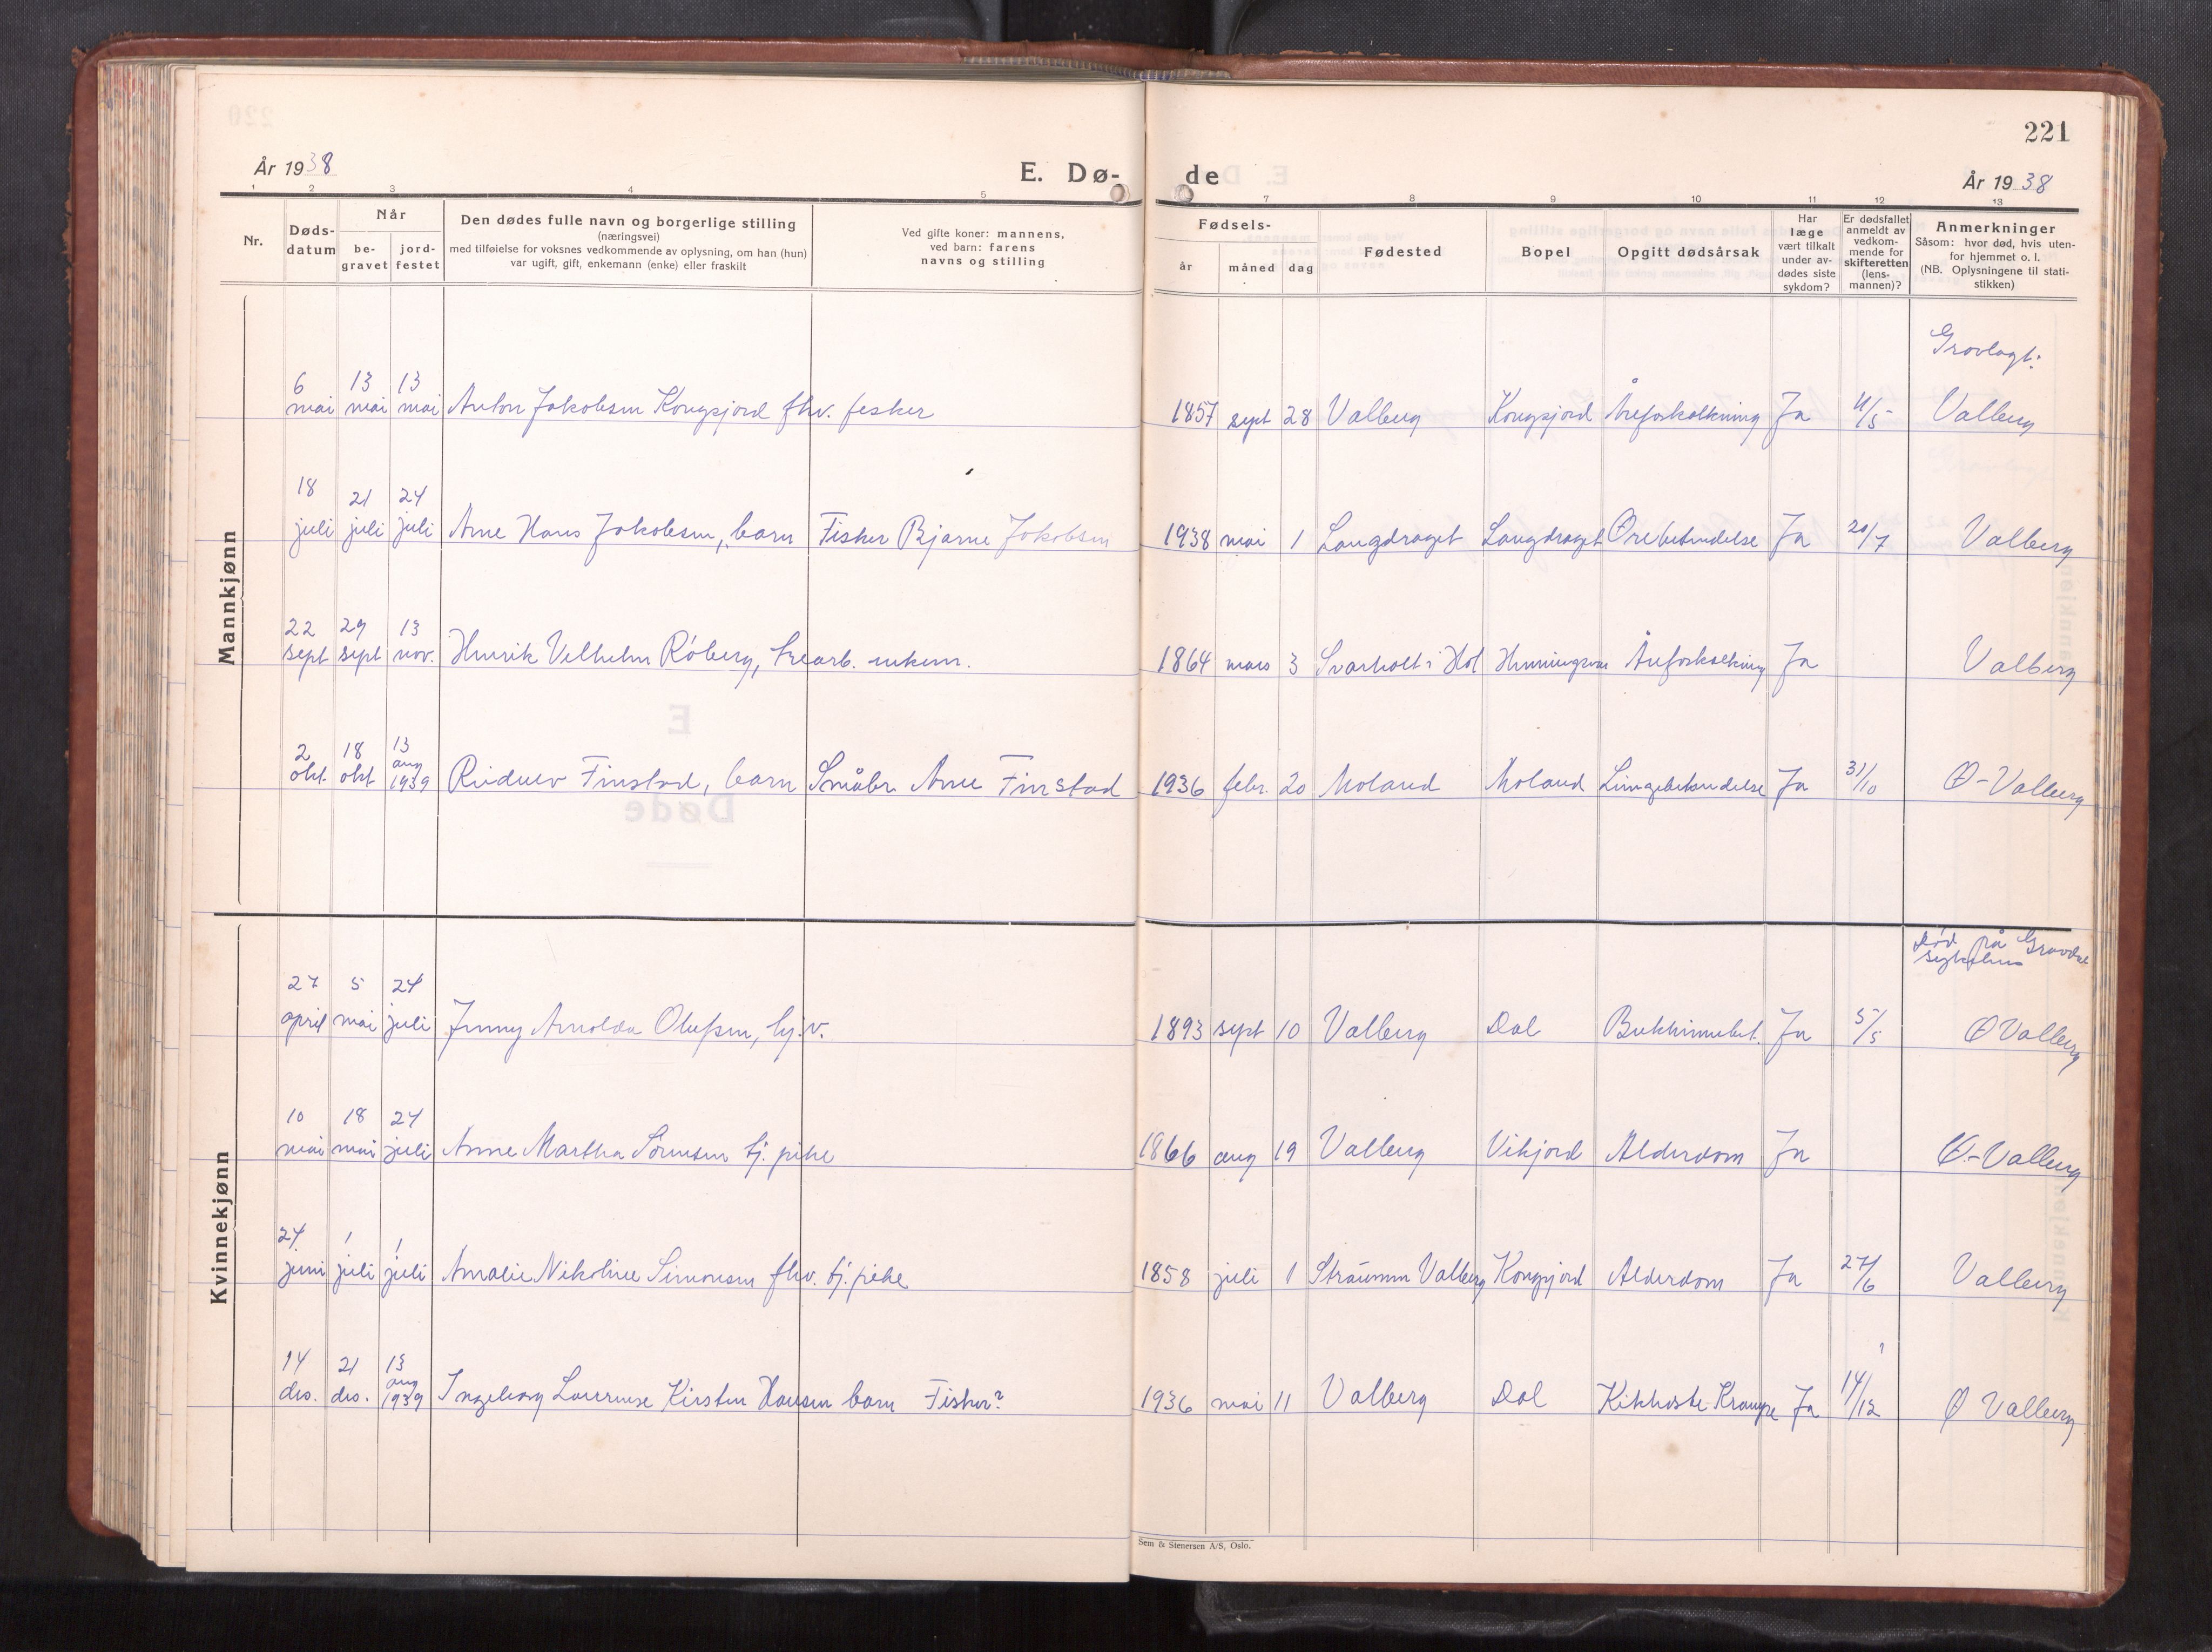 221
År 1938
E. Dø-
de
År 1938
1 2 3 4 5 7 8 9 10 11 12 13
Nr.
Døds-
datum
Når
be-
gravet
jord-
festet
Den dødes fulle navn og borgerlige stilling
(næringsvei)
med tilføielse for voksnes vedkommende av oplysning, om han (hun)
var ugift, gift, enkemann (enke) eller fraskilt
Ved gifte koner: mannens,
ved barn: farens
navns og stilling
Fødsels-
år måned dag
Fødested
Bopel
Opgitt dødsårsak
Har
læge
vært tilkalt
under av-
dødes siste
sykdom?
Er dødsfallet
anmeldt av
vedkom-
mende for
skifteretten
(lens-
mannen)?
Anmerkninger
Såsom: hvor død, hvis uten-
for hjemmet o. l.
(NB. Oplysningene til stati-
stikken)
Mannkjønn
Gravlagt:
6 13 13
mai mai mai Anton Jakobsen Kongsjord fhv. fisker 1857 sept 28 Valberg Kongsjord Åreforkalkning Ja 11/5 Valberg
18 21 24
juli juli juli Arne Hans Jakobsen, barn Fisker Bjarne Jakobsen 1938 mai 1 Langdraget Langdraget Ørebetendelse Ja 20/7 Valberg
22 29 13
sept sept nov. Henrik Vilhelm Røberg, trearb. enkem. 1864 mars 3 Svarholt i Hol Henningsvær Åreforkalkning Ja Valberg
2 18 13
okt. okt aug
1939 Finstad, barn Småbr. Arne Finstad 1936 febr. 20 Moland Moland Lungebetendelse Ja 31/10 Ø-Valberg
Kvinnekjønn
Død på Gravdal
sykehus
27 5 24
april mai juli Jenny Arnolda Olufsen, hj.v. 1893 sept 10 Valberg Dal Bukhinnebet. Ja 5/5 Ø Valberg
10 18 24
mai mai juli Anne Martha Sørensen tj. pike 1866 aug 19 Valberg Vikjord Alderdom Ja Ø.-Valberg
24 1 1
juni juli juli Amalie Nikoline Simonsen fhv. tj. pike 1858 juli 1 Straumen Valberg Kongsjord Alderdom Ja 27/6 Valberg
14 21 13
des. des. aug
1939 Ingeborg Laurense Kirsten Hansen barn Fisker? 1936 mai 11 Valberg Dal Kikhoste-Krampe Ja 14/12 Ø Valberg
Sem & Stenersen A/S, Oslo.